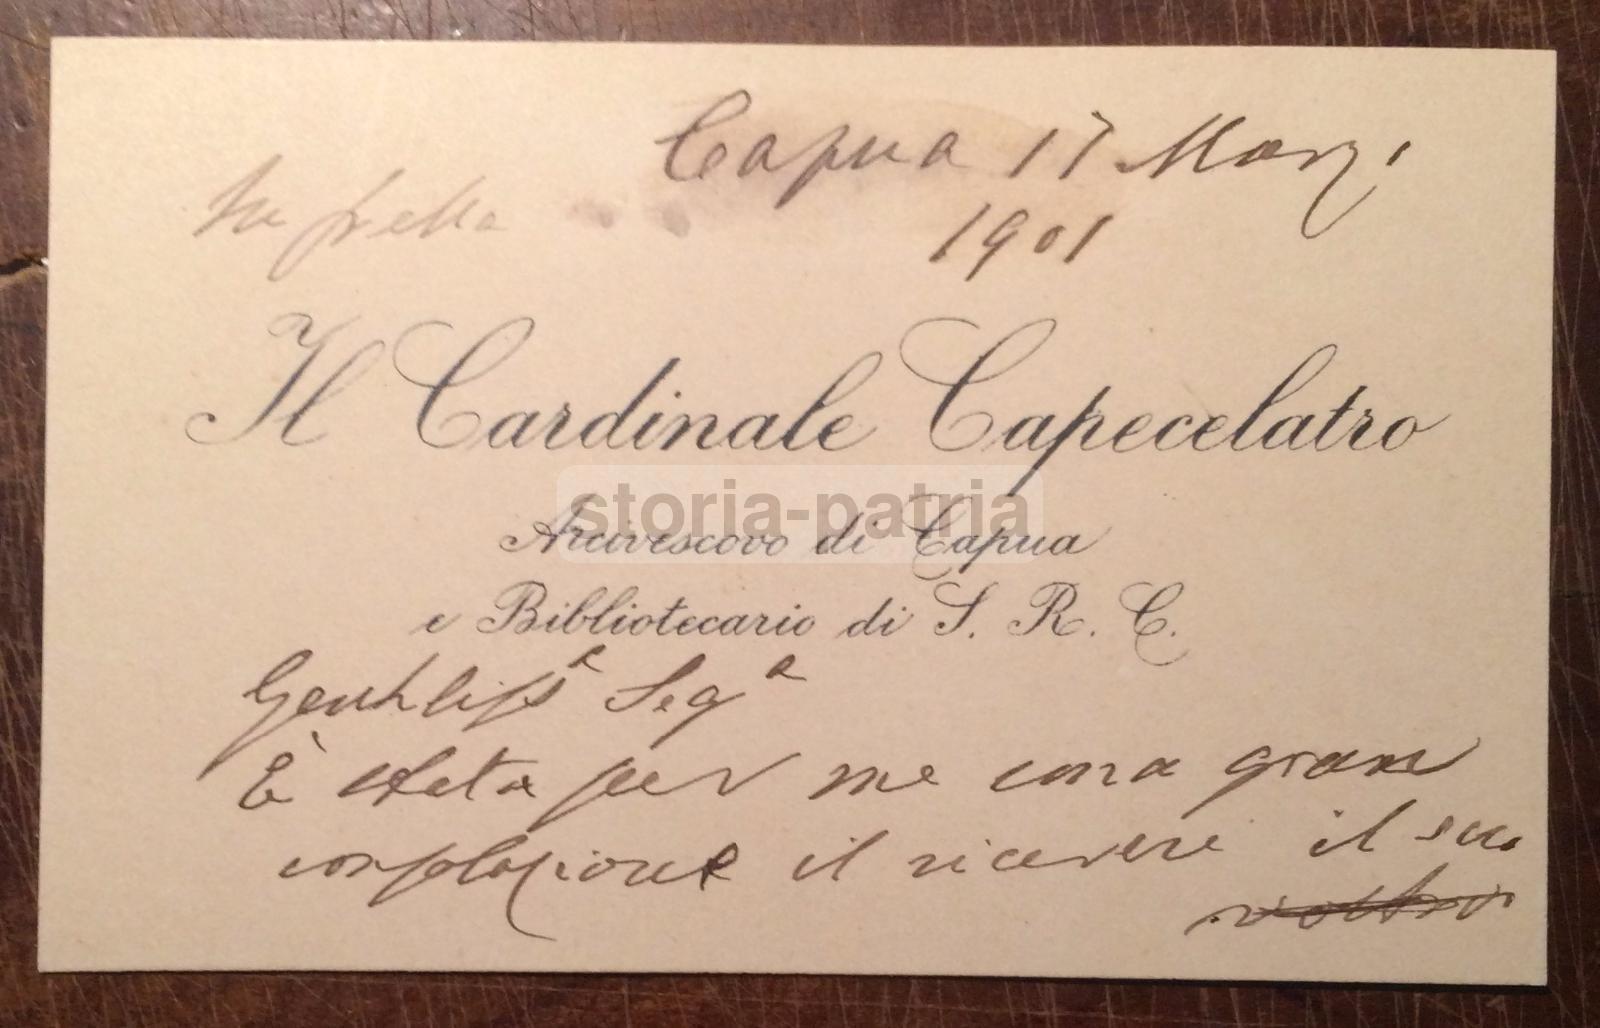 Capua 17 Marzo
In fretta
1901
Il Cardinale Capecelatro
storia-patria
Arcivescovo di Capua
e Bibliotecario di S. R. C.
Gentiliss.e Sig.e
È stata per me una gran
consolazione il ricevere il suo
vostro